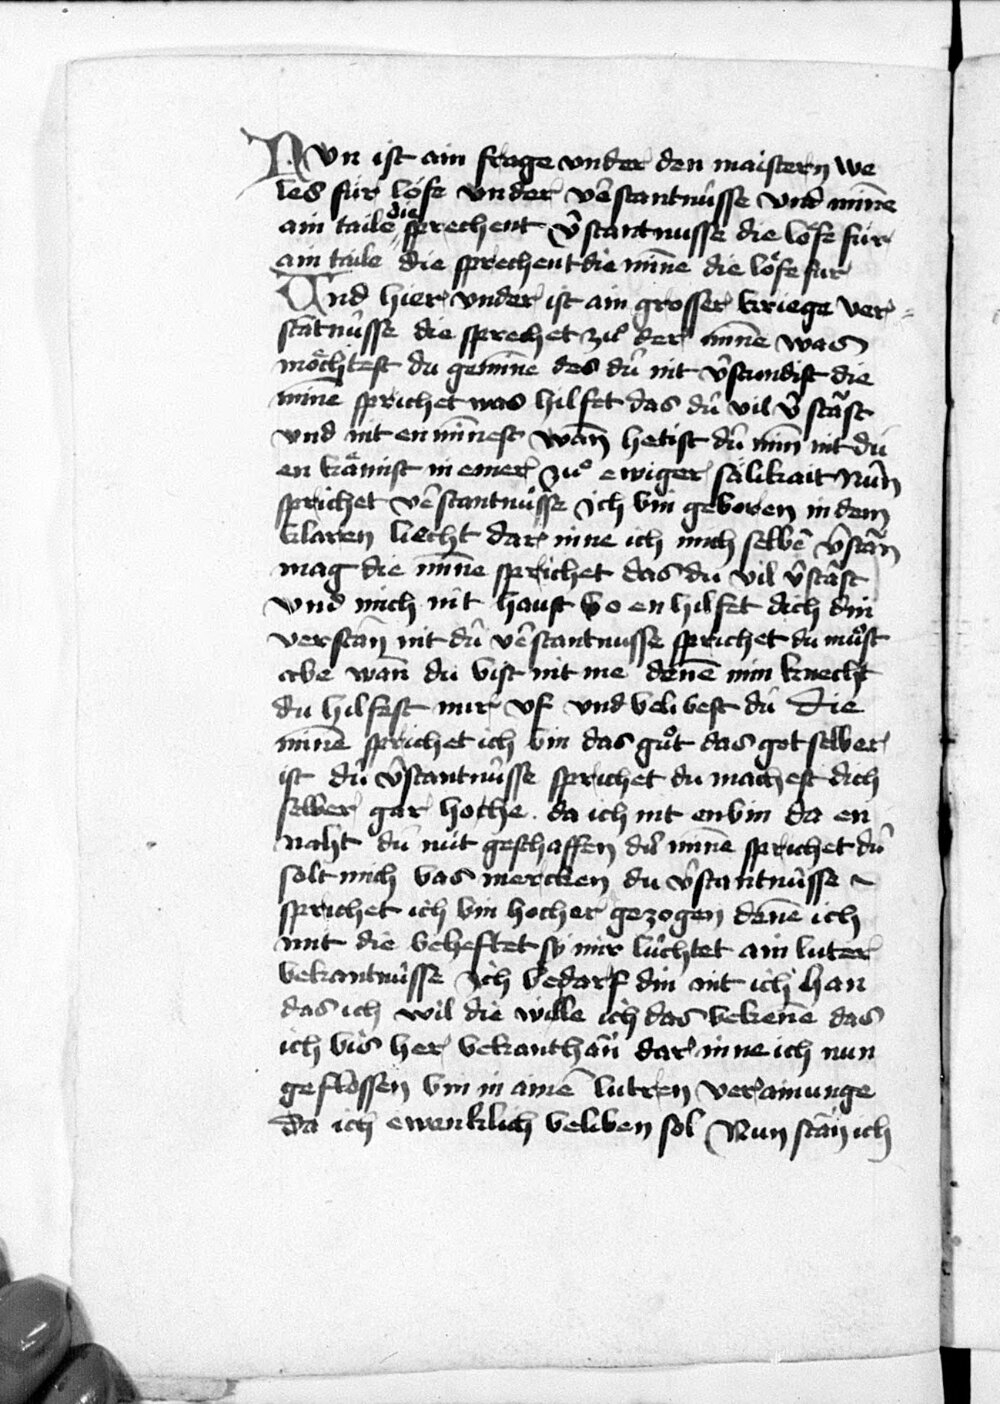 Nvn ist ain frage vnder den maistern we
les für löfe vnder v̂stantnûsse vnd min̄e
ain taile die sprechent v̂stantnusse die löfe für
ain taile die sprechent die min̄e die löfe für
Vnd hier vnder ist ain grosser kriege ver
statnûsse die sprechet zů der min̄e was
möchtest du gemin̄e des dû nit v̂stundist die
min̄e sprichet was hilfet das dû vil v̂stâst
vnd nit en min̄est wan̄ hetist dû min̄ nit dü
en kämist niemer zů ewiger sälikait Nûn
sprichet vêstantnüsse ich bin geboren in dem
klaren liecht dar inne ich mich selbē v̂stān
mag die min̄e sprichet das du vil v̂stâst
vnd mich nit haust so en hilfet dich din
verstan̄ nit dû vêstantnusse sprichet du můst
abe wan̄ du bist nit me denē min knecht
du hilfest mir vf vnd belibest dû Die
min̄e sprichet ich bin das gůt das got selber
ist dû v̂stantnûsse sprichet du machest dich
selber gar hoche da ich nit enbin da en
naht dû nüt geschaffen dû min̄e sprichet dû
solt mich bas mercken du v̂stantnûsse
sprichet ich bin hocher gezogen denē ich
mit die beheftet sy mir lüchtet ain luter
bekantnûsse Ich bedarf din nit ich han
das ich wil die wille ich das bekenē das
ich bis her bekant han̄ dar inne ich nun
geflossen bin in ainē lutren verainunge
Da ich ewenklich beliben sol Nun stān ich